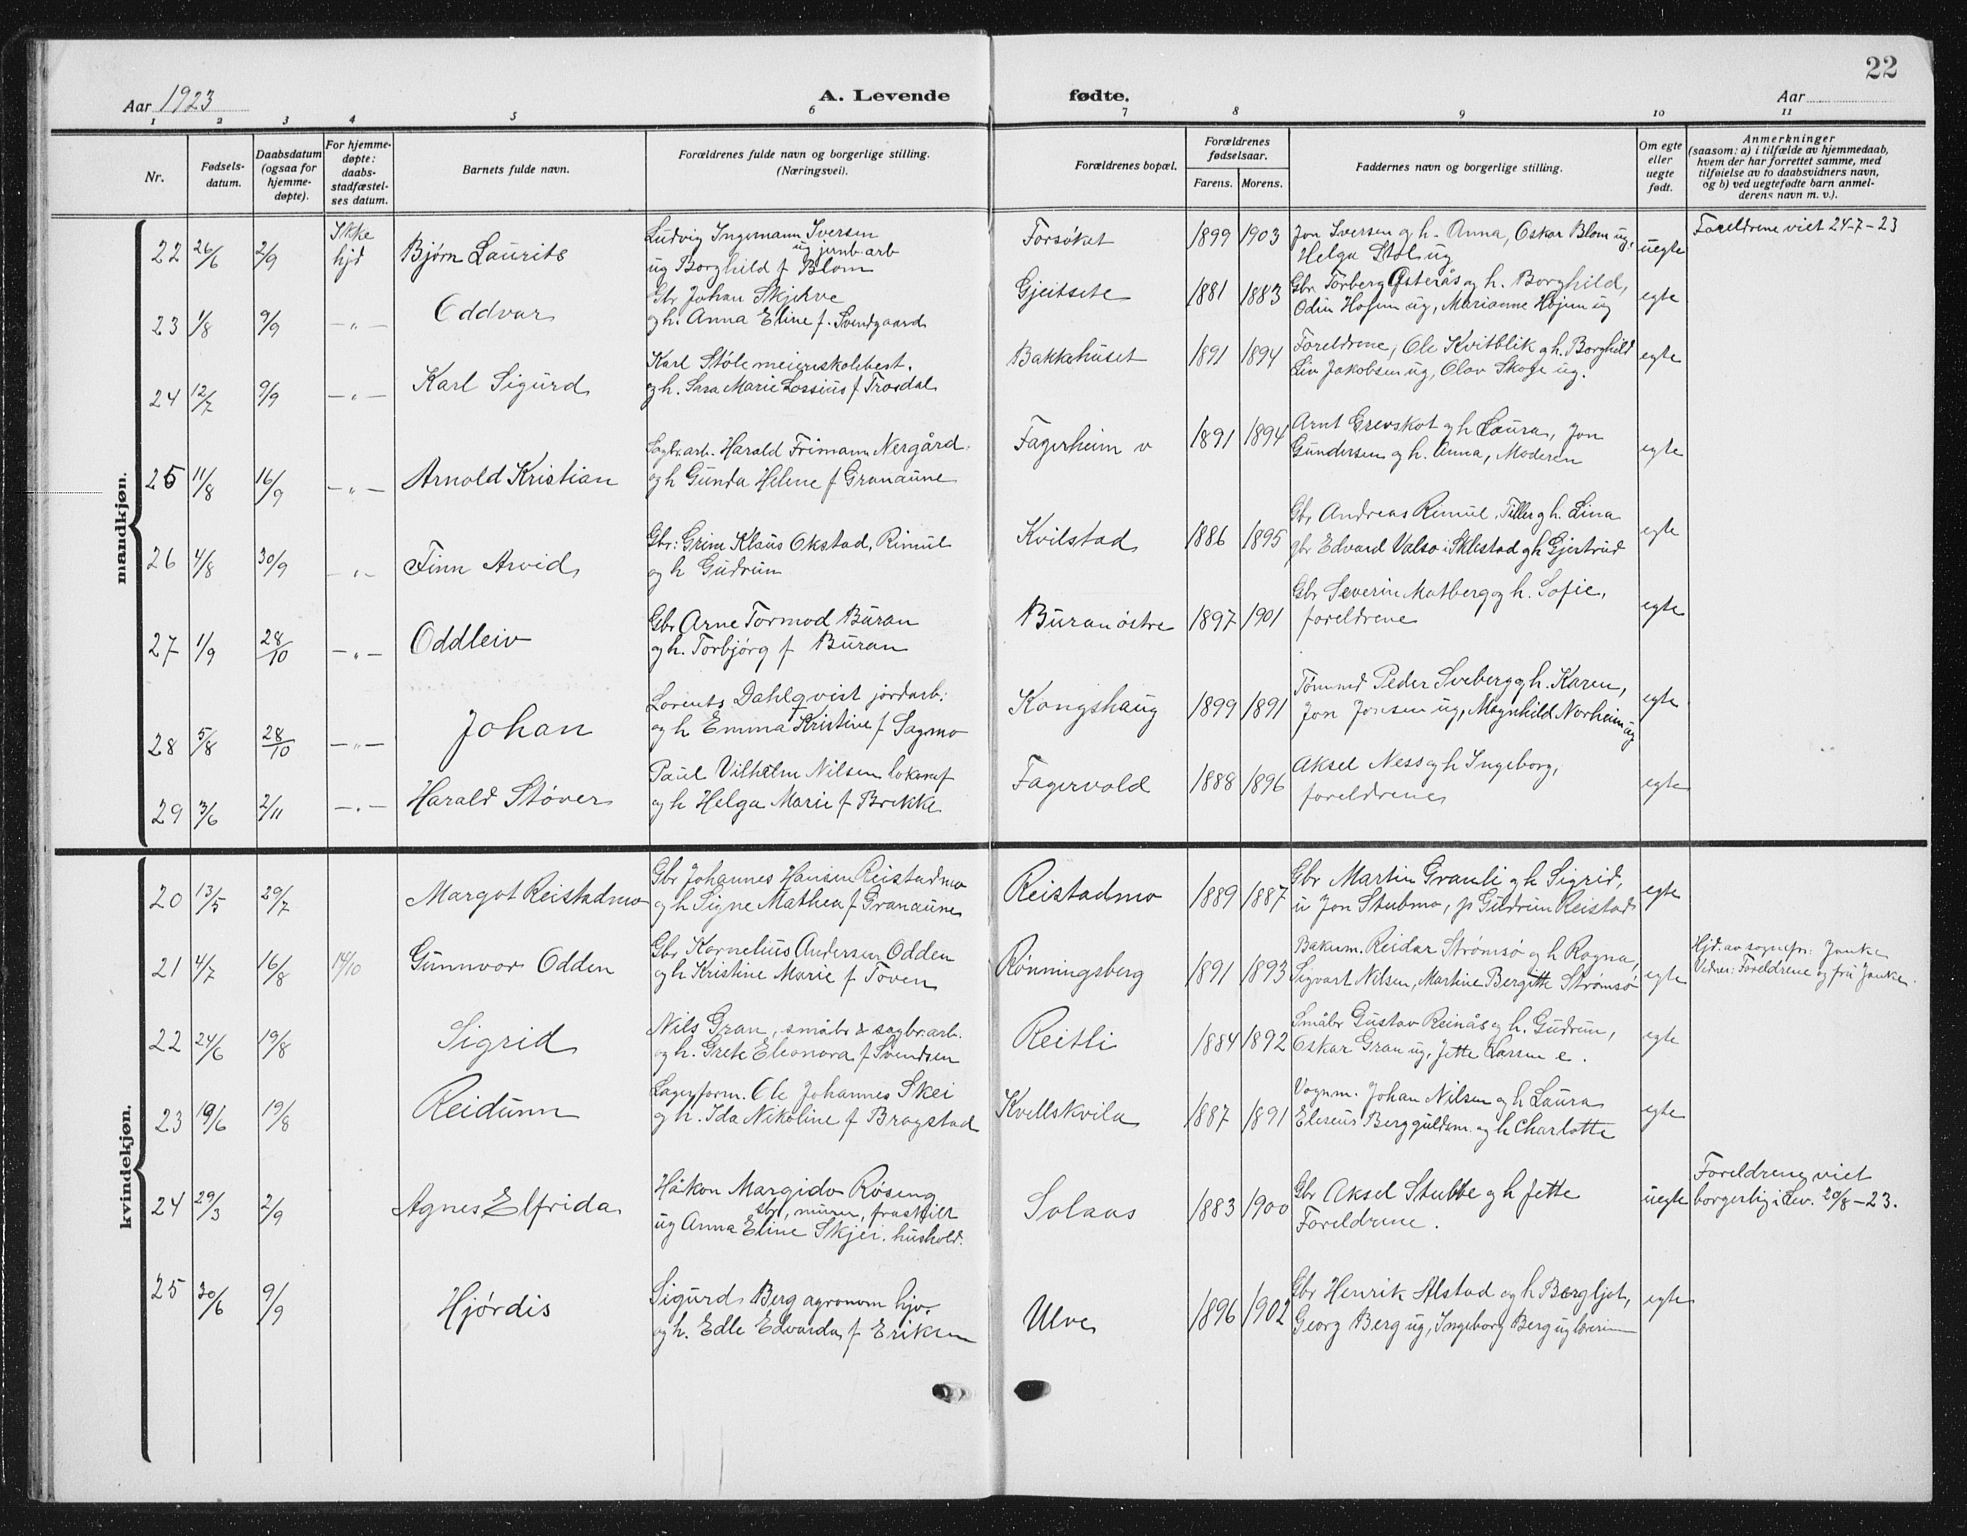 22
Aar 1923
A. Levende fødte.
Aar
1 2 3 4 5 6 7 8 9 10 11
Nr.
Fødsels-
datum.
Daabsdatum
(ogsaa for
hjemme-
døpte).
For hjemme-
døpte:
daabs-
stadfæstel-
ses datum.
Barnets fulde navn.
Forældrenes fulde navn og borgerlige stilling.
(Næringsvei).
Forældrenes bopæl.
Forældrenes
fødselsaar.
Farens. Morens.
Faddernes navn og borgerlige stilling.
Om egte
eller
uegte
født.
Anmerkninger
(saasom: a) i tilfælde av hjemmedaab,
hvem der har forrettet samme, med
tilføielse av to daabsvidners navn,
og b) ved uegtefødte barn anmel-
derens navn m. v.).
mandkjøn.
22 26/6 2/9 Ikke hjd Bjørn Laurits
Ludvig Ingemann Iversen
ug jernb.arb
ug Borghild f Blom
Forsøket 1899 1903
Jon Iversen og h. Anna, Oskar Blom ug,
Helga Stol ug
uegte
Foreldrene viet 24-7-23
23 1/8 9/9 -„- Oddvar
Gbr Johan Skjerve
og h. Anna Eline f. Svendgaard
Gjeitsete 1881 1883
Gbr. Torberg Østerås og h. Borghild,
Odin Hojem ug, Marianne Hojem ug
egte
24 12/7 9/9 -„- Karl Sigurd
Karl Støle meieriskolebest.
og h. Sara Marie Lossius f Trosdal
Bakkehuset 1891 1894
Foreldrene, Ole Kvitblik og h. Borghild
Liv Jakobsen ug, Olav Skoge ug.
egte
25 11/8 16/9 -„- Arnold Kristian
Sagbr.arb. Harald Frimann Nergård
og h Gunda Helene f Granaune
Fagerheim v 1891 1894
Arnt Grevskot og h Laura, Jon
Gundersen og h. Anna, Moderen
egte
26 4/8 30/9 -„- Finn Arvid
Gbr: Grim Klaus Okstad, Rimul
og h Gudrun
Kvilstad 1886 1895
Gbr Andreas Rimul, Tiller og h. Lina
gbr Edvard Valso i Sklestad og h Gjertrud
egte
27 1/9 28/10 -„- Oddleiv
Gbr Arne Tormod Buran
og h. Torbjørg f Buran
Buran østre 1897 1901
Gbr Severin Matberg og h. Sofie,
foreldrene
egte
28 5/8 28/10 -„- Johan
Lorents Dahlqvist jordarb:
og h Emma Kristine f Sagmo
Kongshaug 1899 1891
Tømmd Peder Sveberg og h. Karen,
Jon Jonsen ug, Magnhild Norheim ug
egte
29 3/6 2/11 -„- Harald Støver
Paul Vilhelm Nilsen lokomf
og h Helga Marie f Brekke
Fagervold 1888 1896
Aksel Ness og h Ingeborg,
foreldrene
egte
kvindekjøn.
20 13/5 29/7 Margot Reistadmo
Gbr Johannes Hansen Reistadmo
og h Signe Mathea f Granaune
Reistadmo 1889 1887
Gbr Martin Granli og h Sigrid,
u Jon Stubmo, p Gudrun Reistad
egte
21 4/7 16/8 14/10 Gunnvor Odden
Gbr Kornelius Andersen Odden
og h Kristine Marie f Toven
Rønningsberg 1891 1893
Bakerm. Reidar Strømsø og h Ragna,
Sigvart Nilsen, Martine Bergitte Strømsø
egte
Hjd. av sognepr: Janke
Vidner: Foreldrene og fru Janke.
22 24/6 19/8 Sigrid
Nils Gran, småbr & sagbr.arb.
og h. Grete Eleonora f Svendsen
Reitli 1884 1892
Småbr Gustav Reinås og h. Gudrun,
Oskar Gran ug, Jette Larsen e.
egte
23 19/6 19/8 Reidunn
Lagerform. Ole Johannes Skei
og h. Ida Nikoline f Bragstad
Kvellskvila 1887 1891
Vognm. Johan Nilsen og h Laura
Eliseus Berg guldsm. og h Charlotte
egte
24 29/3 2/9 Agnes Elfrida
Håkon Margido Røseng
sbr, murer, fraskilt
ug Anna Eline Skjei, hushold.
Solaas 1883 1900
Gbr Aksel Stubbe og h Jette
Foreldrene.
uegte
Foreldrene viet
borgerlig i Lev. 20/8-23.
25 30/6 9/9 Hjørdis
Sigurd Berg agronom hjv.
og h. Edle Edvarda f Eriksen
Ulve 1896 1902
Gbr Henrik Alstad og h Bergljot,
Georg Berg ug, Ingeborg Berg ug lærerinne
egte